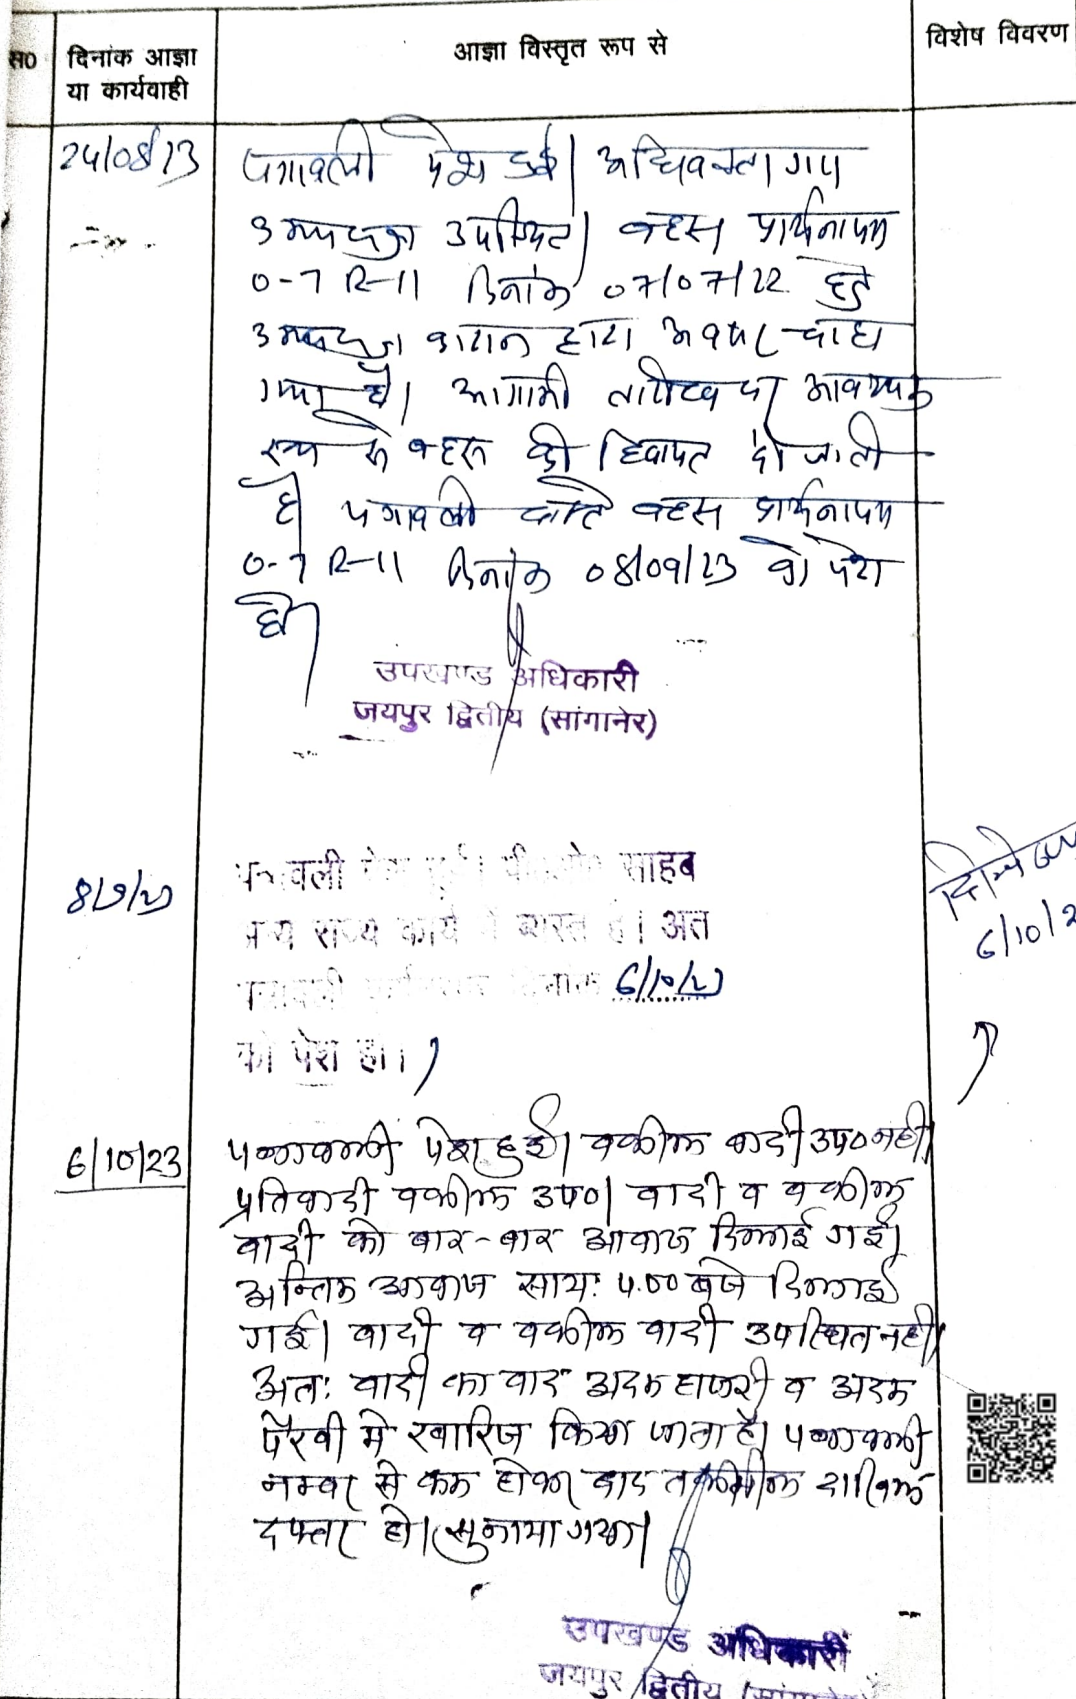 स0 दिनांक आज्ञा या कार्यवाही आज्ञा विस्तृत रूप से विशेष विवरण
24/08/23 पत्रावली पेश हुई। अधिवक्ता गण
उभयपक्ष उपस्थित। बहस प्रार्थनापत्र
0-7 R-11 दिनांक 07/07/22 हेतु
उभयपक्ष द्वारा अवसर चाहा
गया है। आगामी तारीख पर आवश्यक
रूप से बहस की हिदायत दी जाती
है पत्रावली वास्ते बहस प्रार्थनापत्र
0-7 R-11 दिनांक 08/09/23 को पेश
हो।
उपखण्ड अधिकारी
जयपुर द्वितीय (सांगानेर)
8/9/23 पत्रावली पेश हुई। पीठासीन साहब
अन्य राज्य कार्य में व्यस्त है। अत
पत्रावली दिनांक 6/10/23
को पेश हो।
6/10/2
6/10/23 पत्रावली पेश हुई। वकील वादी उप० नही।
प्रतिवादी वकील उप०। वादी व वकील
वादी को बार-बार आवाज दिलाई गई।
अन्तिम आवाज सायः 5.00 बजे दिलाई
गई। वादी व वकील वादी उपस्थित नही।
अतः वादी का वाद अदम हाजरी व अदम
पैरवी मे खारिज किया जाता है। पत्रावली
नम्बर से कम होकर बाद तकमील दाखिल
दफ्तर हो। सुनाया गया।
उपखण्ड अधिकारी
जयपुर द्वितीय (सांगानेर)